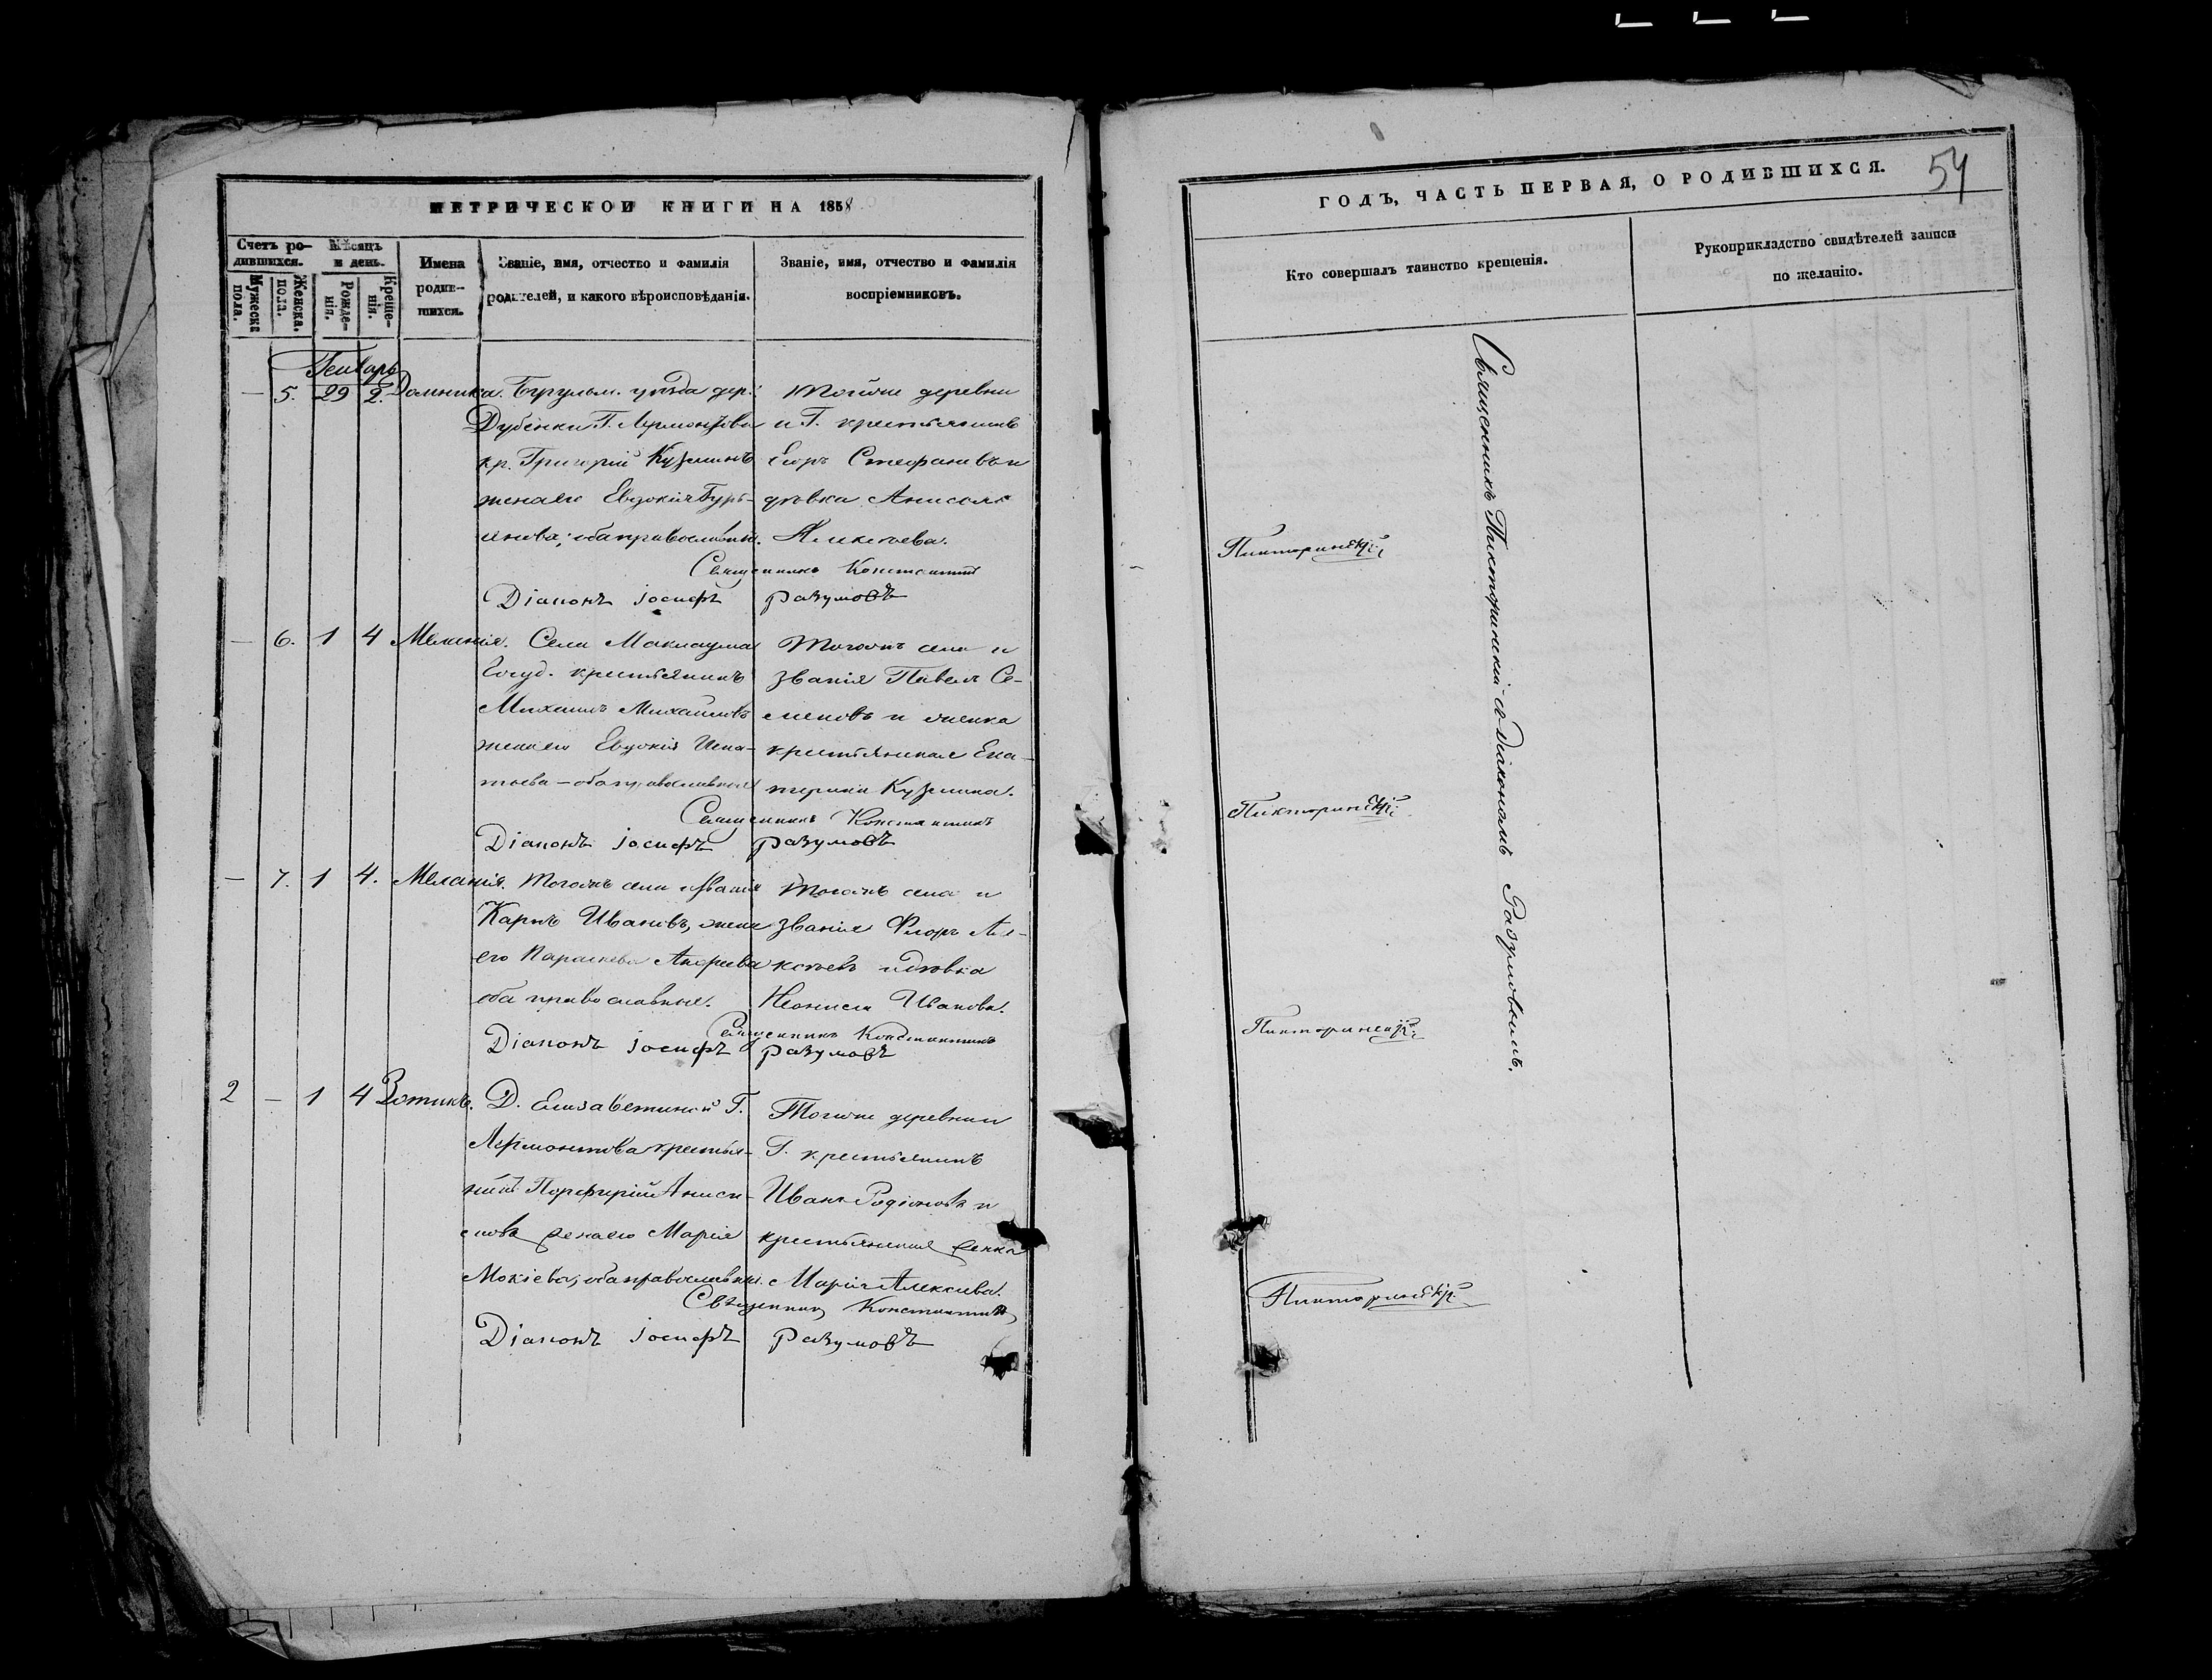 МЕТРИЧЕСКОЙ КНИГИ НА 1858
Счетъ родившихся.
Мужеска пола.
Женска. пола.
Мѣсяцъ и день.
Рожденія.
Крещенія.
Имена родившихся.
Званіе, имя, отчество и фамилія
родителей, и какого вѣроисповѣданія.
Званіе, имя, отчество и фамилія
воспріемниковъ.
Генварь
— 5. 29 2. Домника. Бугульм. уѣзда дер.
Дубенки Г. Лермонтова
кр. Григорій Кузминъ
жена его Евдокія
оба православны.
Тойже деревни
и Г. крестьянинъ
Егоръ Стефановъ и
дѣвка Анисья
Священникъ Константинъ
Діаконъ Іосифъ Разумовъ
— 6. 1 4 Меланія. Села Маклауша
Госуд. крестьянинъ
Михаилъ Михайловъ
жена его Евдокія Игна-
тьева — оба православные
Тогожъ села и
званія Павелъ Се-
меновъ и женка
крестьянская Ека-
терина Кузмина.
Священникъ Константинъ
Діаконъ Іосифъ Разумовъ
— 7. 1 4. Меланія. Тогожъ села и званія
Карпъ Ивановъ, жена
его Параскева Андреева
оба православные.
Тогожъ села и
званія Флоръ Але-
ксѣевъ и дѣвка
Неонила Иванова.
Священникъ Константинъ
Діаконъ Іосифъ Разумовъ
2 — 1 4 Зотикъ. Д. Елизаветиной Г.
Лермонтова крестья-
нинъ Порфирій Аниси-
мовъ жена его Марія
Мокіева; оба православны.
Тогоже деревни и
Г. крестьянинъ
Иванъ Родіоновъ и
крестьянская женка
Марія Алексѣева.
Священникъ Константинъ
Діаконъ Іосифъ Разумовъ
ГОДЪ, ЧАСТЬ ПЕРВАЯ, О РОДИВШИХСЯ.
54
Кто совершалъ таинство крещенія.
Рукоприкладство свидѣтелей записи
по желанію.
Священникъ Пикторинскій съ діакономъ Разумовымъ.
Пикторинскій
Пикторинскій
Пикторинскій
Пикторинскій